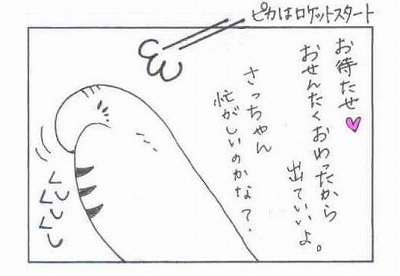 ピカはロケットスタート
お待たせ♥
おせんたくおわったから
出ていいよ。
さっちゃん
忙がしいのかな?
くしくし